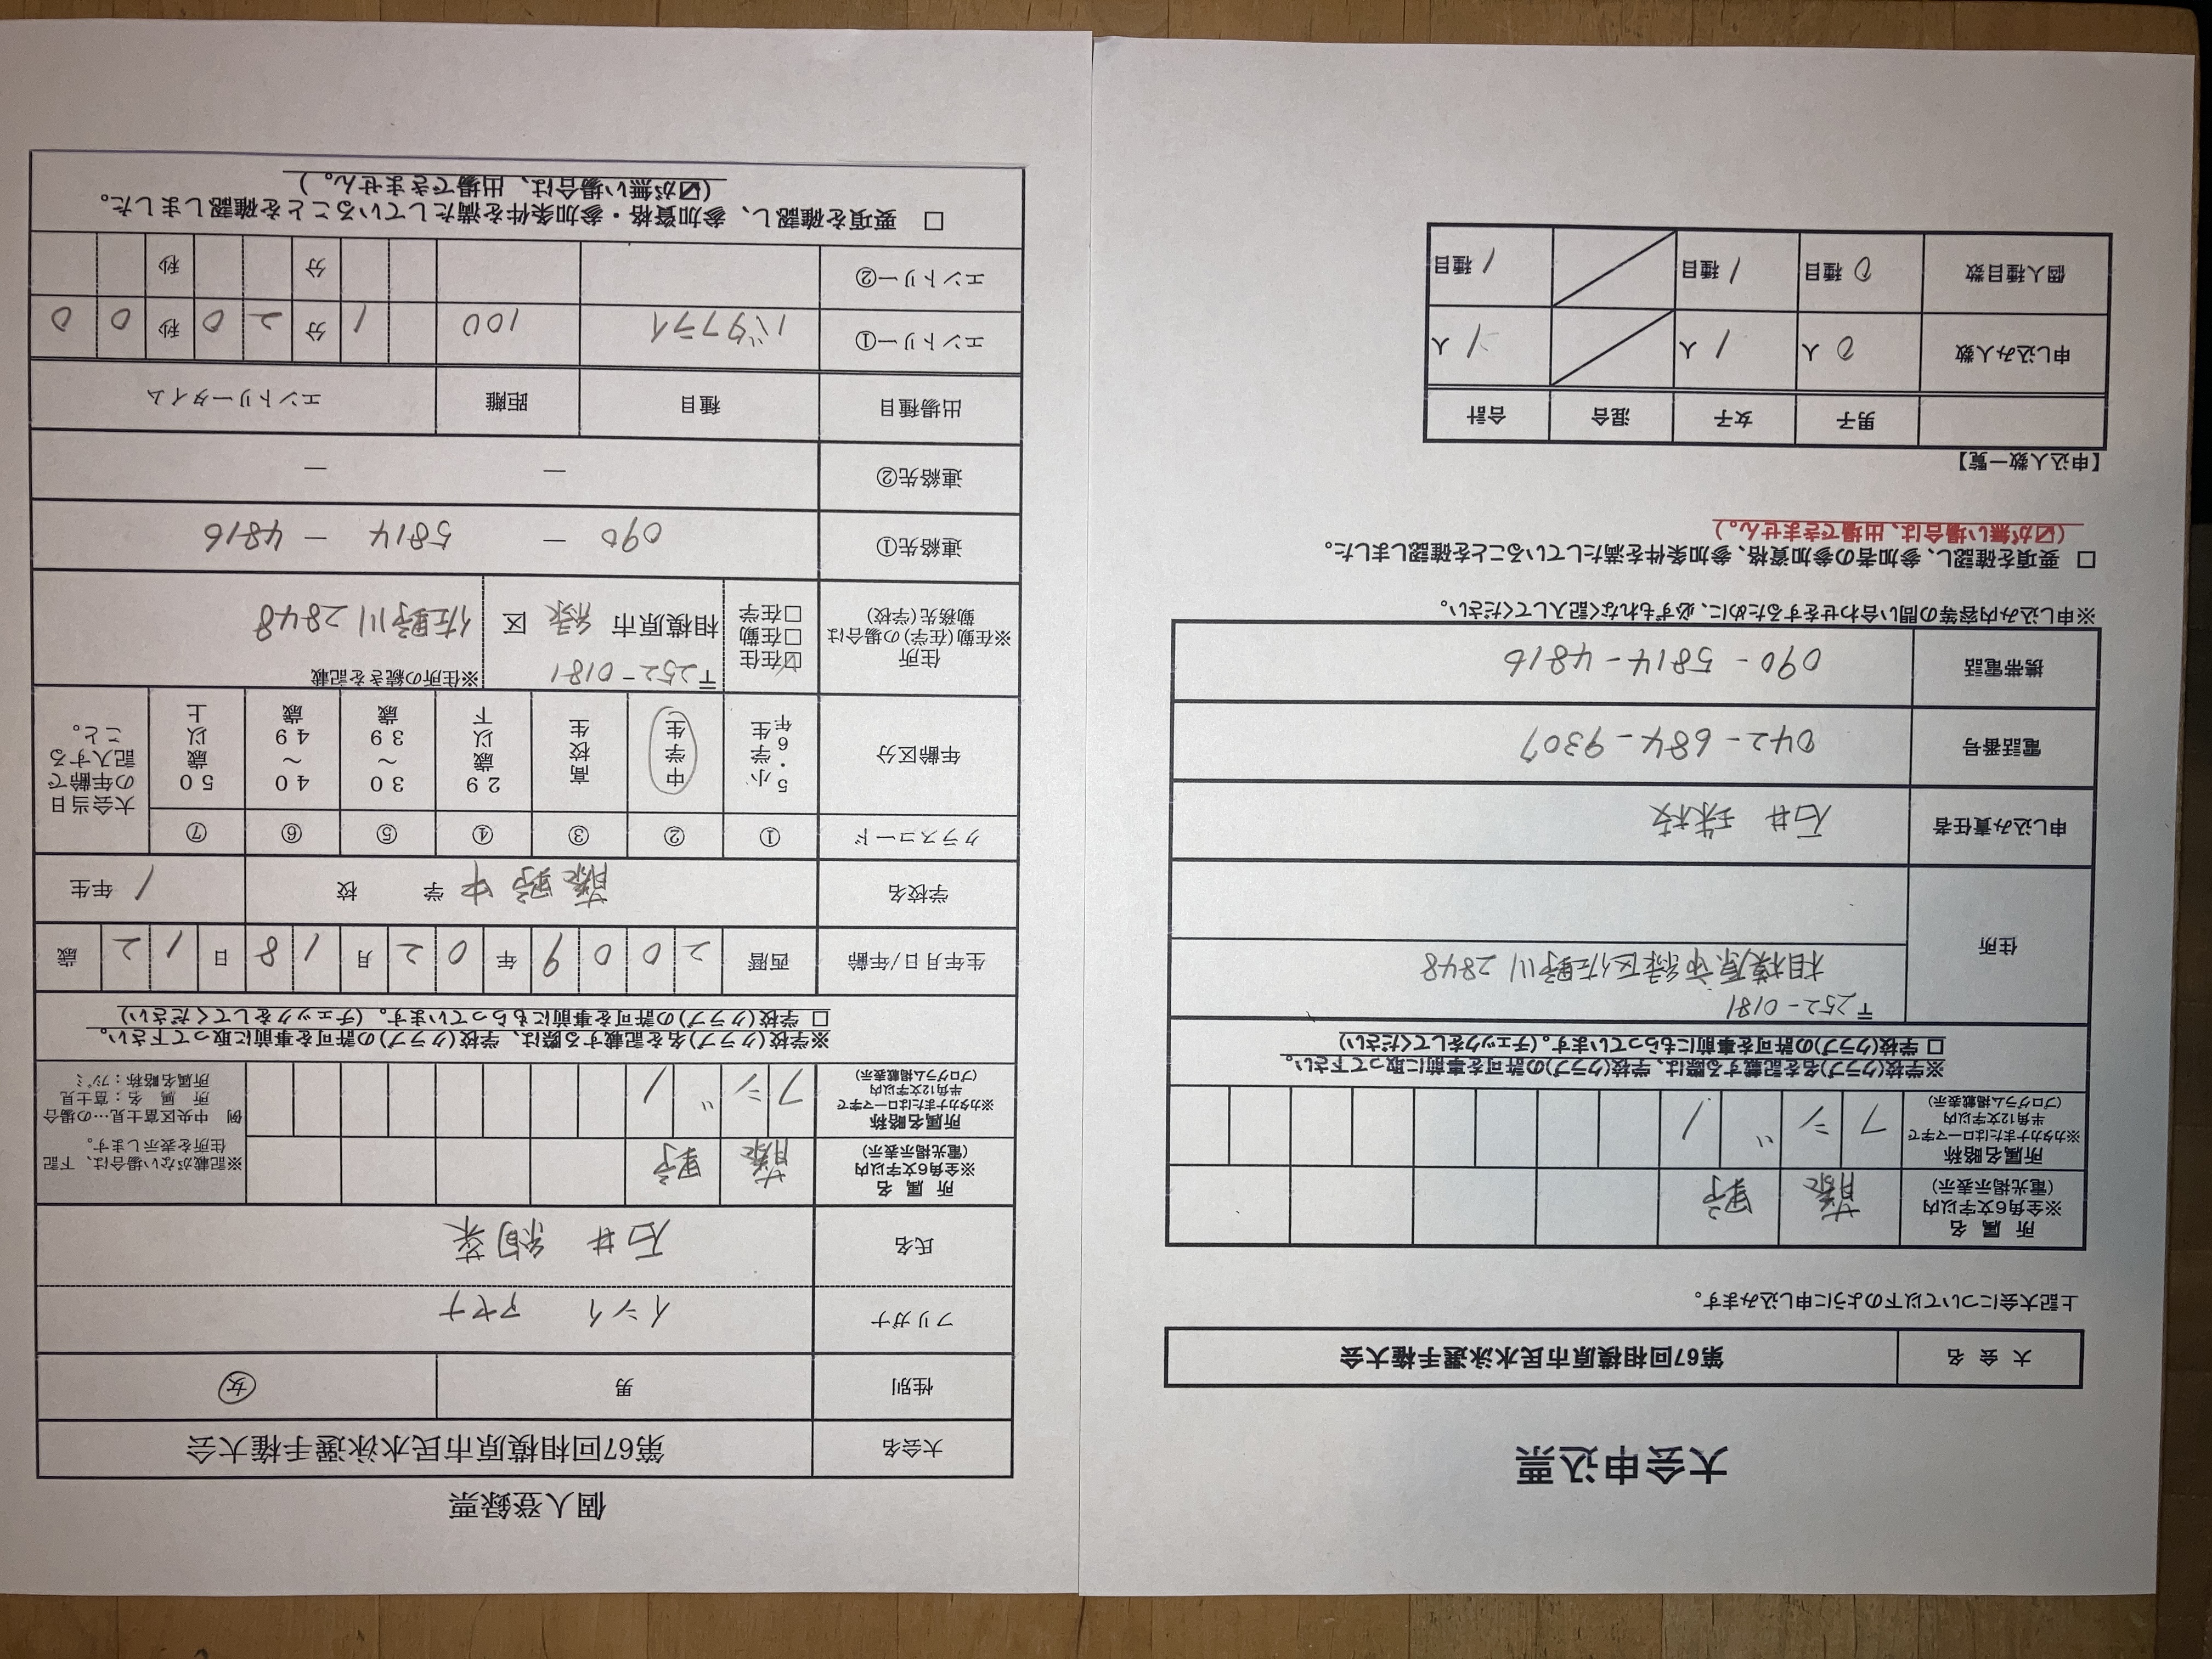 大会申込票
大会名 第67回相模原市民水泳選手権大会
上記大会について以下のように申し込みます。
所属名
※全角6文字以内
(電光掲示表示)
藤野
所属名略称
※カタカナまたはローマ字で
半角12文字以内
(プログラム掲載表示)
フジノ
※学校(クラブ)名を記載する際は、学校(クラブ)の許可を事前に取って下さい。
□ 学校(クラブ)の許可を事前にもらっています。(チェックをしてください)
住所
〒252-0181
相模原市緑区佐野川2848
申し込み責任者 石井 珠枝
電話番号 042-684-9307
携帯電話 090-5814-4816
※申し込み内容等の問い合わせをするために、必ずもれなく記入してください。
□ 要項を確認し、参加者の参加資格、参加条件を満たしていることを確認しました。
(☑が無い場合は、出場できません。)
【申込人数一覧】
男子 女子 混合 合計
申し込み人数 0人 1人 1人
個人種目数 0種目 1種目 1種目
個人登録票
大会名 第67回相模原市民水泳選手権大会
性別 男 女
フリガナ イシイ アヤナ
氏名 石井 絢菜
所属名
※全角6文字以内
(電光掲示表示)
藤野
所属名略称
※カタカナまたはローマ字で
半角12文字以内
(プログラム掲載表示)
フジノ
※記載がない場合は、下記
住所を表示します。
例 中央区富士見…の場合
所属名:富士見
所属名略称:フジミ
※学校(クラブ)名を記載する際は、学校(クラブ)の許可を事前に取って下さい。
□ 学校(クラブ)の許可を事前にもらっています。(チェックをしてください)
生年月日/年齢 西暦 2009年02月18日 12歳
学校名 藤野中学校 1年生
クラスコード ① ② ③ ④ ⑤ ⑥ ⑦
年齢区分 小学生5・6年 中学生 高校生 29歳以下 30~39歳 40~49歳 50歳以上
大会当日
の年齢で
記入する
こと。
住所
※在勤(在学)の場合は
勤務先(学校)
☑在住
□在勤
□在学
〒252-0181
相模原市 緑 区
※住所の続きを記載
佐野川2848
連絡先① 090 - 5814 - 4816
連絡先② - -
出場種目 種目 距離 エントリータイム
エントリー① バタフライ 100 1分20秒00
エントリー② 分 秒
□ 要項を確認し、参加資格・参加条件を満たしていることを確認しました。
(☑が無い場合は、出場できません。)